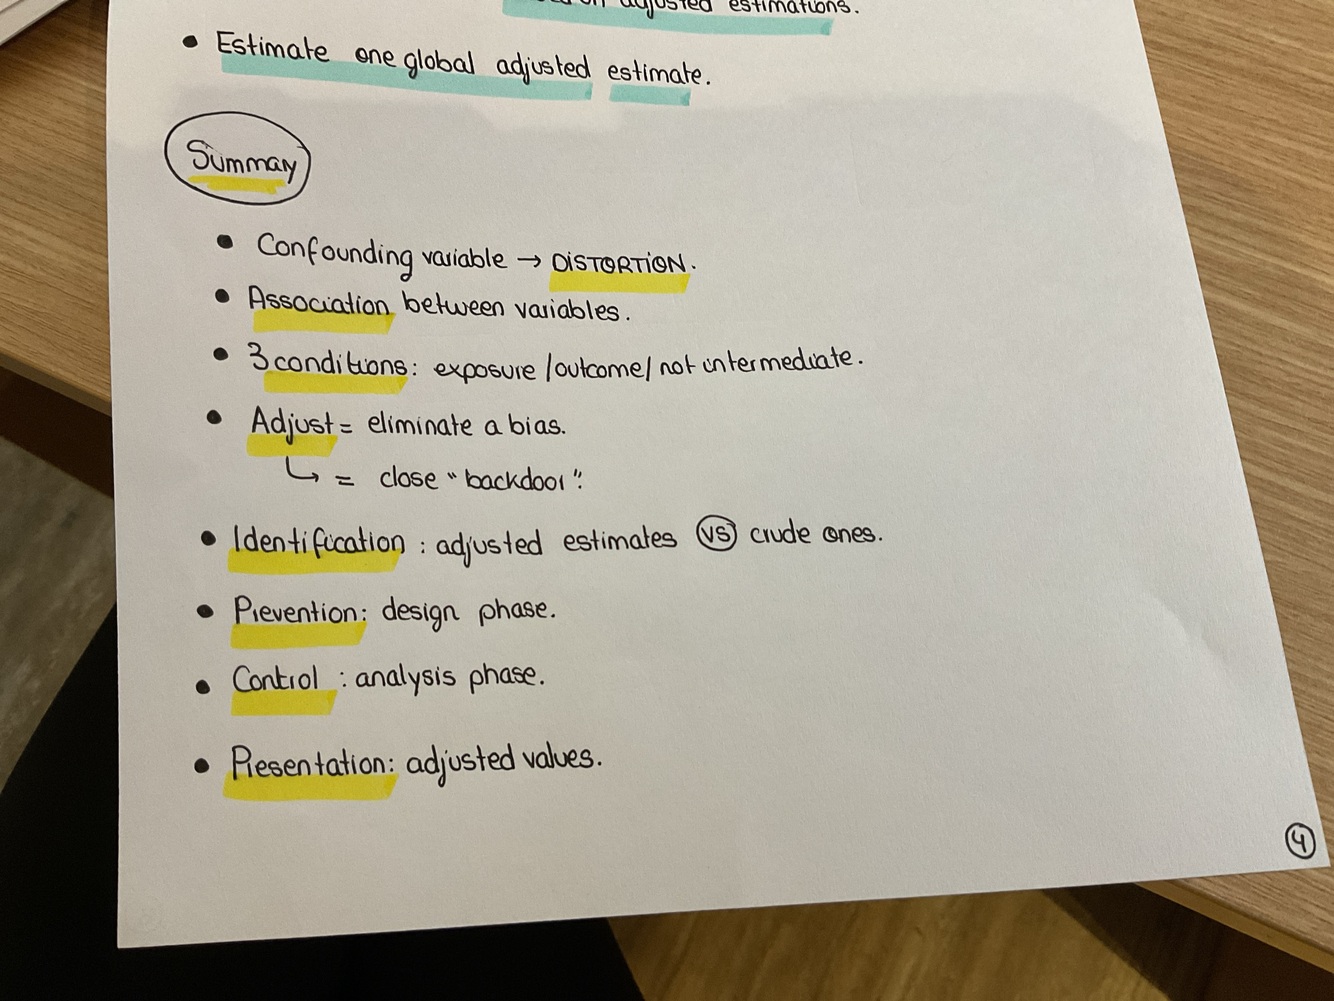 adjusted estimations.
• Estimate one global adjusted estimate.
Summary
• Confounding variable → DISTORTION.
• Association between variables.
• 3 conditions: exposure / outcome / not intermediate.
• Adjust = eliminate a bias.
↳ = close "backdoor".
• Identification : adjusted estimates VS crude ones.
• Prevention: design phase.
• Control : analysis phase.
• Presentation: adjusted values.
4